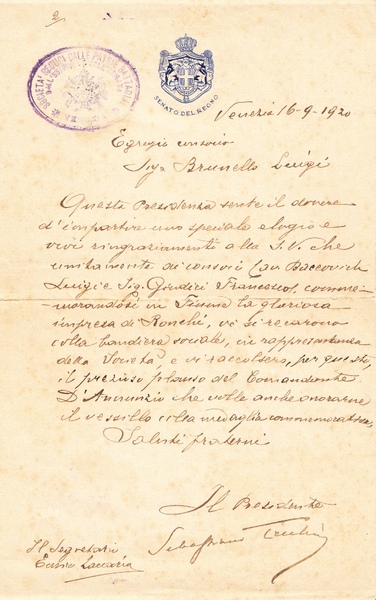 SOCIETÀ REDUCI DALLE PATRIE BATTAGLIE
SENATO DEL REGNO
Venezia 16-9-1920
Egregio consocio
Sigr Brunello Luigi
Questa Presidenza sente il dovere
d'impartire uno speciale elogio e
vivi ringraziamenti alla S.V. che
unitamente ai consoci Cav Baccovich
Luigi e Sig. Giudici Francesco, comme-
morandosi in Fiume la gloriosa
impresa di Ronchi, vi si recarono
colla bandiera sociale, in rappresentanza
della Società e vi raccolsero, per questo,
il prezioso plauso del Comandante
D'Annunzio che volle anche onorarne
il vessillo colla medaglia commemorativa.
Saluti fraterni
Il Presidente
Il Segretario